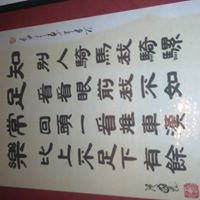 知足常樂
別人騎馬我騎騾
看看眼前我不如
回頭一看推車漢
比上不足下有餘